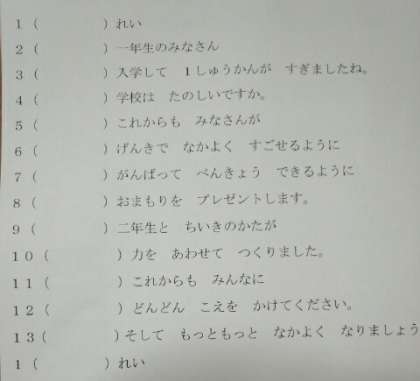 1（　　　　）れい
2（　　　　）一年生のみなさん
3（　　　　）入学して　1しゅうかんが　すぎましたね。
4（　　　　）学校は　たのしいですか。
5（　　　　）これからも　みなさんが
6（　　　　）げんきで　なかよく　すごせるように
7（　　　　）がんばって　べんきょう　できるように
8（　　　　）おまもりを　プレゼントします。
9（　　　　）二年生と　ちいきのかたが
10（　　　　）力を　あわせて　つくりました。
11（　　　　）これからも　みんなに
12（　　　　）どんどん　こえを　かけてください。
13（　　　　）そして　もっともっと　なかよく　なりましょう
1（　　　　）れい